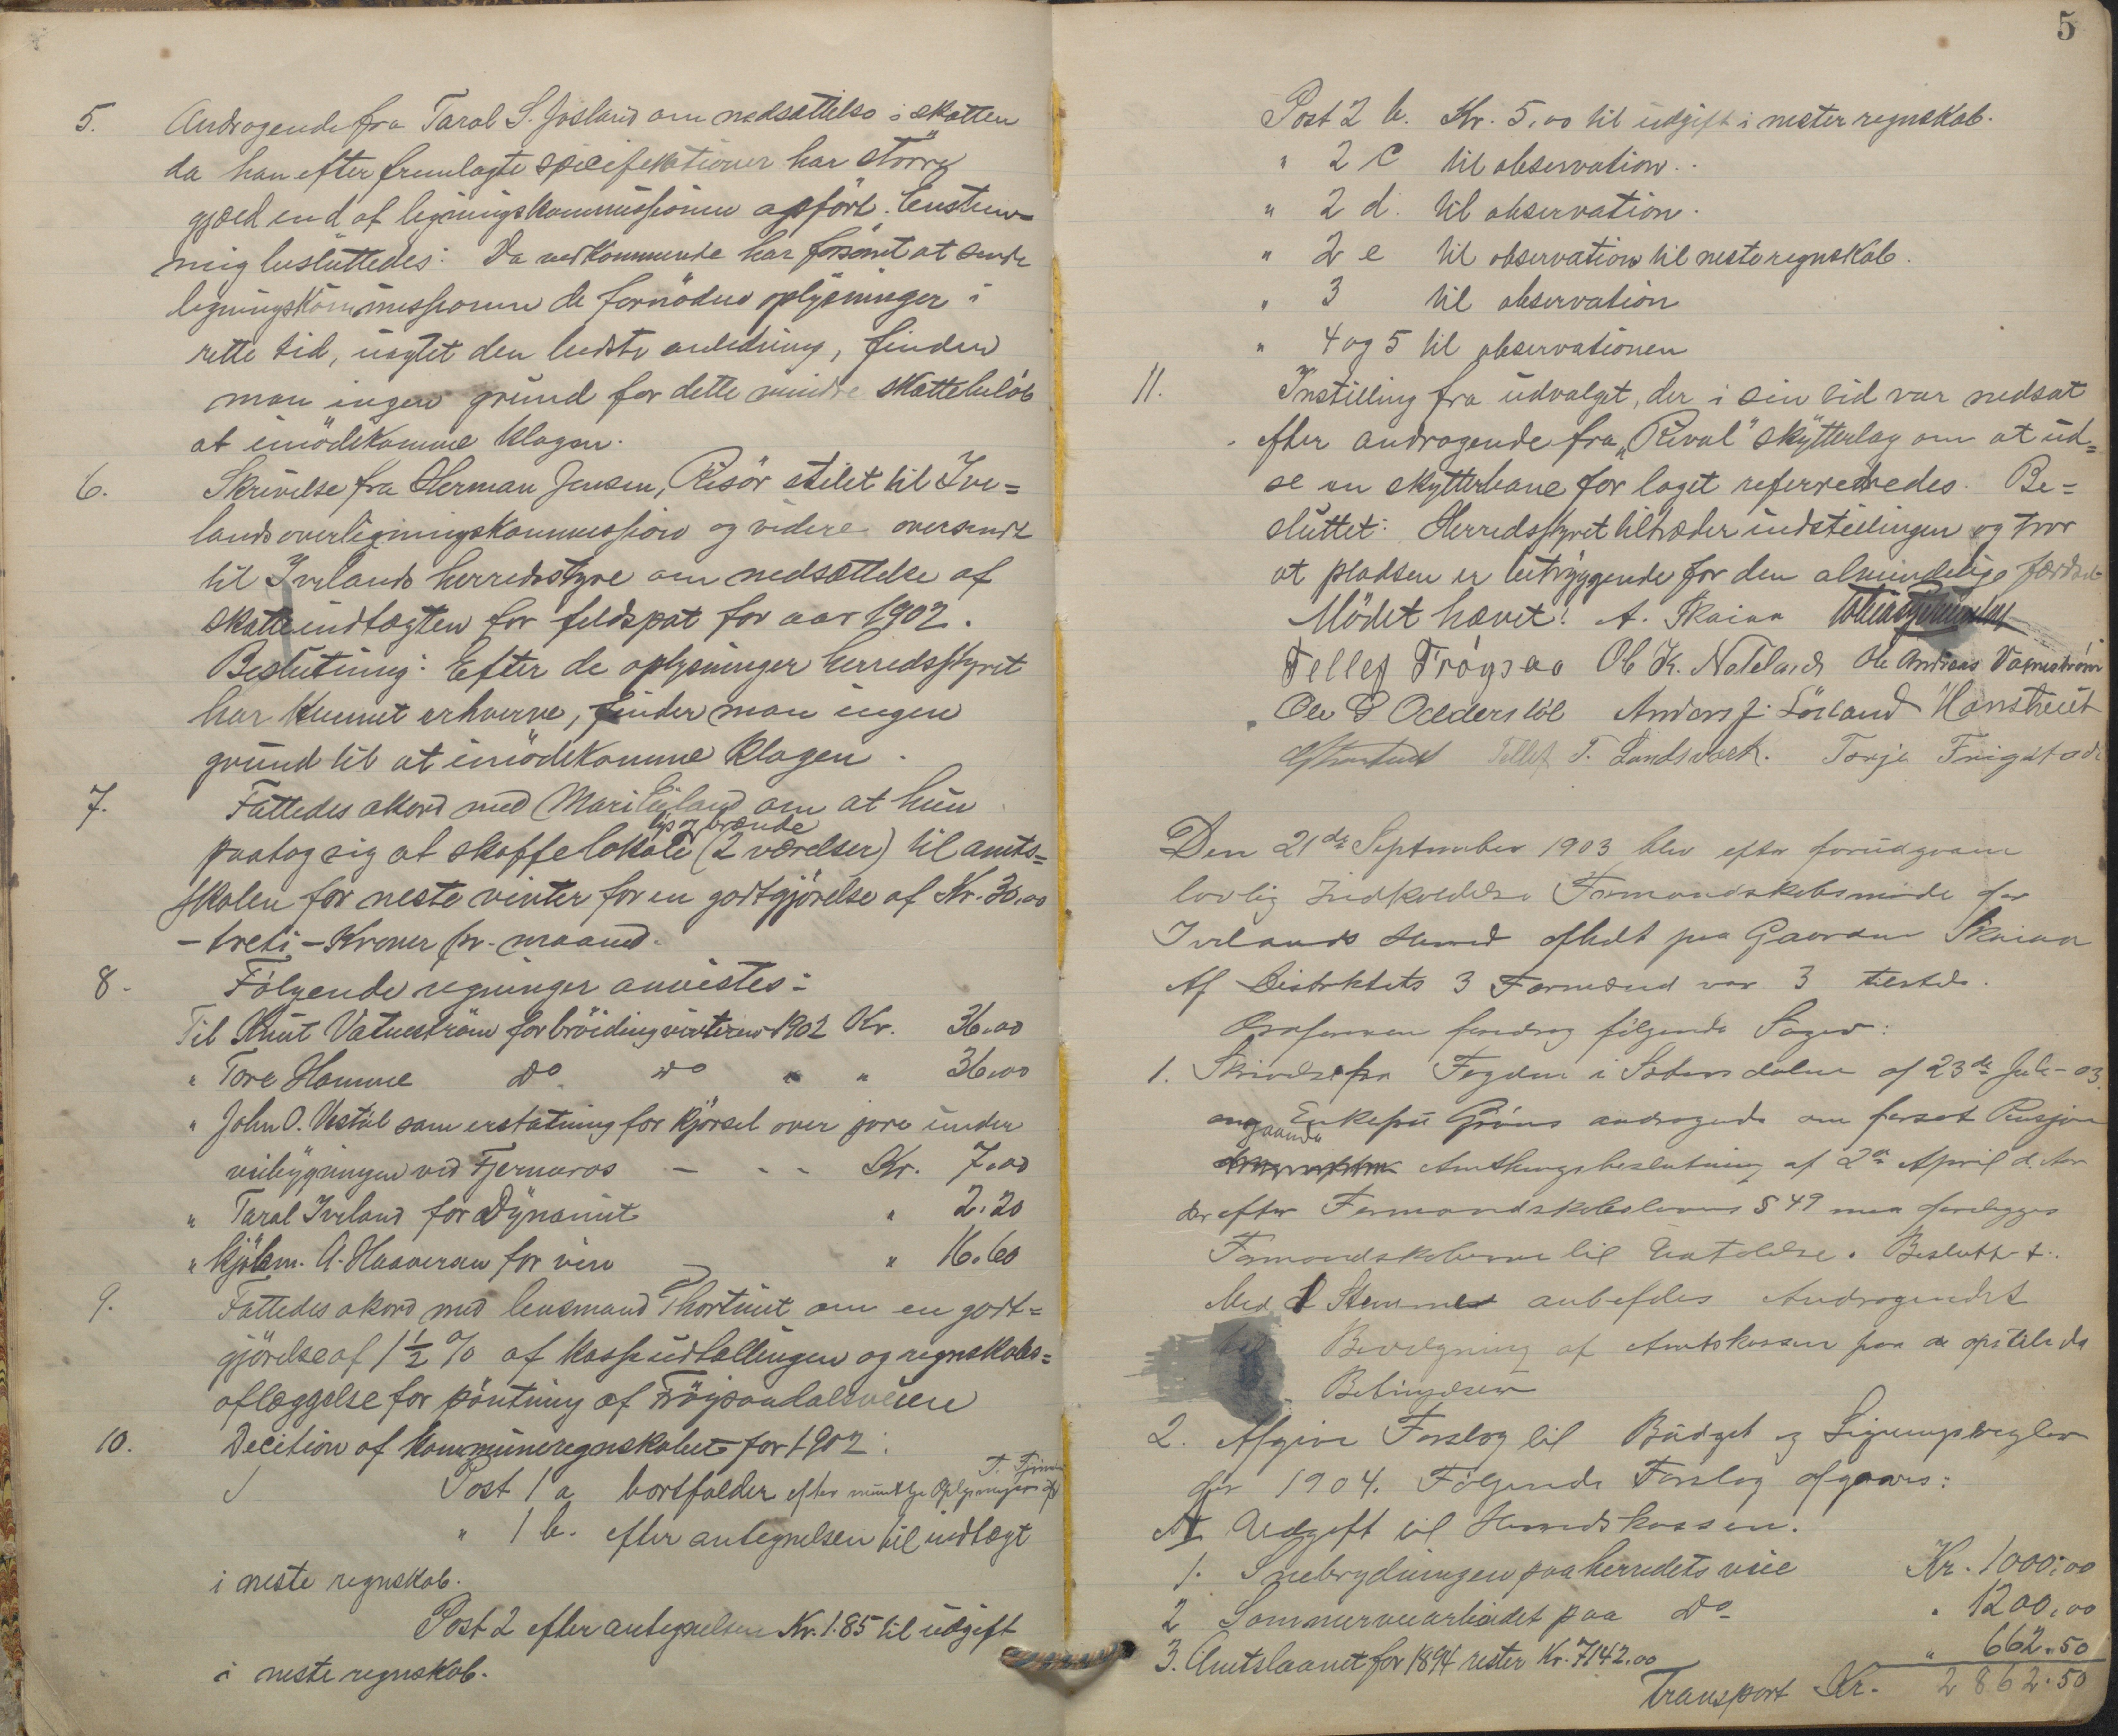 5. Andragende fra Taral S. Josland om nedsættelse i skatten
da han efter fremlagte specifikationer har större
gjæld end af ligningskommissionen opfört. Enstem=
mig besluttedes: Da vedkommende har forsömt at sende
ligningskommissionen de fornödne oplysninger i
rette tid, uagtet den bedste anledning, finder
man ingen grund for dette mindre skattebelöb
at imödekomme klagen.
6. Skrivelse fra Herman Jensen, Risör stilet til Ive=
lands overligningskommission og videre oversendt
til Ivelands herredsstyre om nedsættelse af
skatteindtægten for feldspat for aar 1902.
Beslutning: Efter de oplysninger herredsstyret
har kunnet erhverve, finder man ingen
grund til at imödekomme klagen.
7. Fattedes akord med Mari Eigland om at hun
lys og brænde
paatog sig at skaffe lokale (2 værelser) til amts=
skolen for neste vinter for en godtgjörelse af Kr. 30.00
- treti - Kroner pr. maaned.
8. Fölgende regninger anvistes:
Til Knut Vatneström for bröiding vinteren 1902 Kr. 36.00
" Tore Homme do do " " 36.00
" John O. Vestöl som erstatning for kjörsel over jore under
veibygningen ved Fjermeros - - - Kr. 7.00
" Taral Iveland for Dynamit " 2.20
" Kjöbm. A. Haaversen for vin " 16.60
9. Fattedes akord med lensmand Thortveit om en godt=
gjörelse af 1 1/2 % af kasseudtællingen og regnskabs=
aflæggelse for pöntning af Fröysaadalsveien
10. Decition af kommuneregnskabet for 1902:
Post 1 a bortfalder efter mundtlge Oplysninger af
" 1 b. efter antegnelsen til indtægt
i neste regnskab.
Post 2 efter antegnelsen Kr. 1.85 til udgift
i neste regnskab.
5
Post 2 b. Kr. 5.00 til udgift i nester regnskab.
" 2 c til observation.
" 2 d. til observation.
" 2 e til observation til neste regnskab.
" 3 til observation
" 4 og 5 til observationen
11. Instilling fra udvalget, der i sin tid var nedsat
efter andragende fra "Rival" skytterlag om at ud=
se en skytterbane for laget referredes. Be=
sluttet: Herredsstyret tiltræder indstillingen og tror
at pladsen er betryggende for den almindelige færdsel
Mödet hævet! A. Skaiaa
Tellef Frøysaa Ole K. Nateland Ole Andreas Vatnestrøm
Ole G Odderstöl Anders J. Lösland
Tellef T. Landsverk. Torje Frigstad
Den 21de September 1903 blev efter forudgaaen
lovlig Indkaldelse Formandskabsmøde for
Ivelands Herred afholdt paa Gaarden Skaiaa
Af Distriktets 3 Formænd var 3 tilstede.
Ordføreren foredrog følgende Sager:
1. Skrivelse fra Fogden i Sætersdalen af 23de Juli-03.
ang Enkefru Gröns andragende om forsat Pensjon
gaaende
Amthingsbeslutning af 2den April d. Aar
der efter Formandskabslovens § 49 maa forelægges
Formandskaberne til Udtalelse. Besluttet:
Med 1 Stemme anbefales Andragendet
til Bevilgning af Amtskassen paa de opstilede
Betingelser
2. Afgive Forslag til Budget og Ligningsregler
for 1904. Følgende Forslag afgaves:
A Udgift til Herredskassen.
1. Snebrydningen paa herredets veie Kr. 1000.00
2 Sommerveiarbeidet paa do " 1200.00
3. Amtslaanet for 1894 rester Kr. 7142.00 " 662.50
Transport Kr. 2862.50